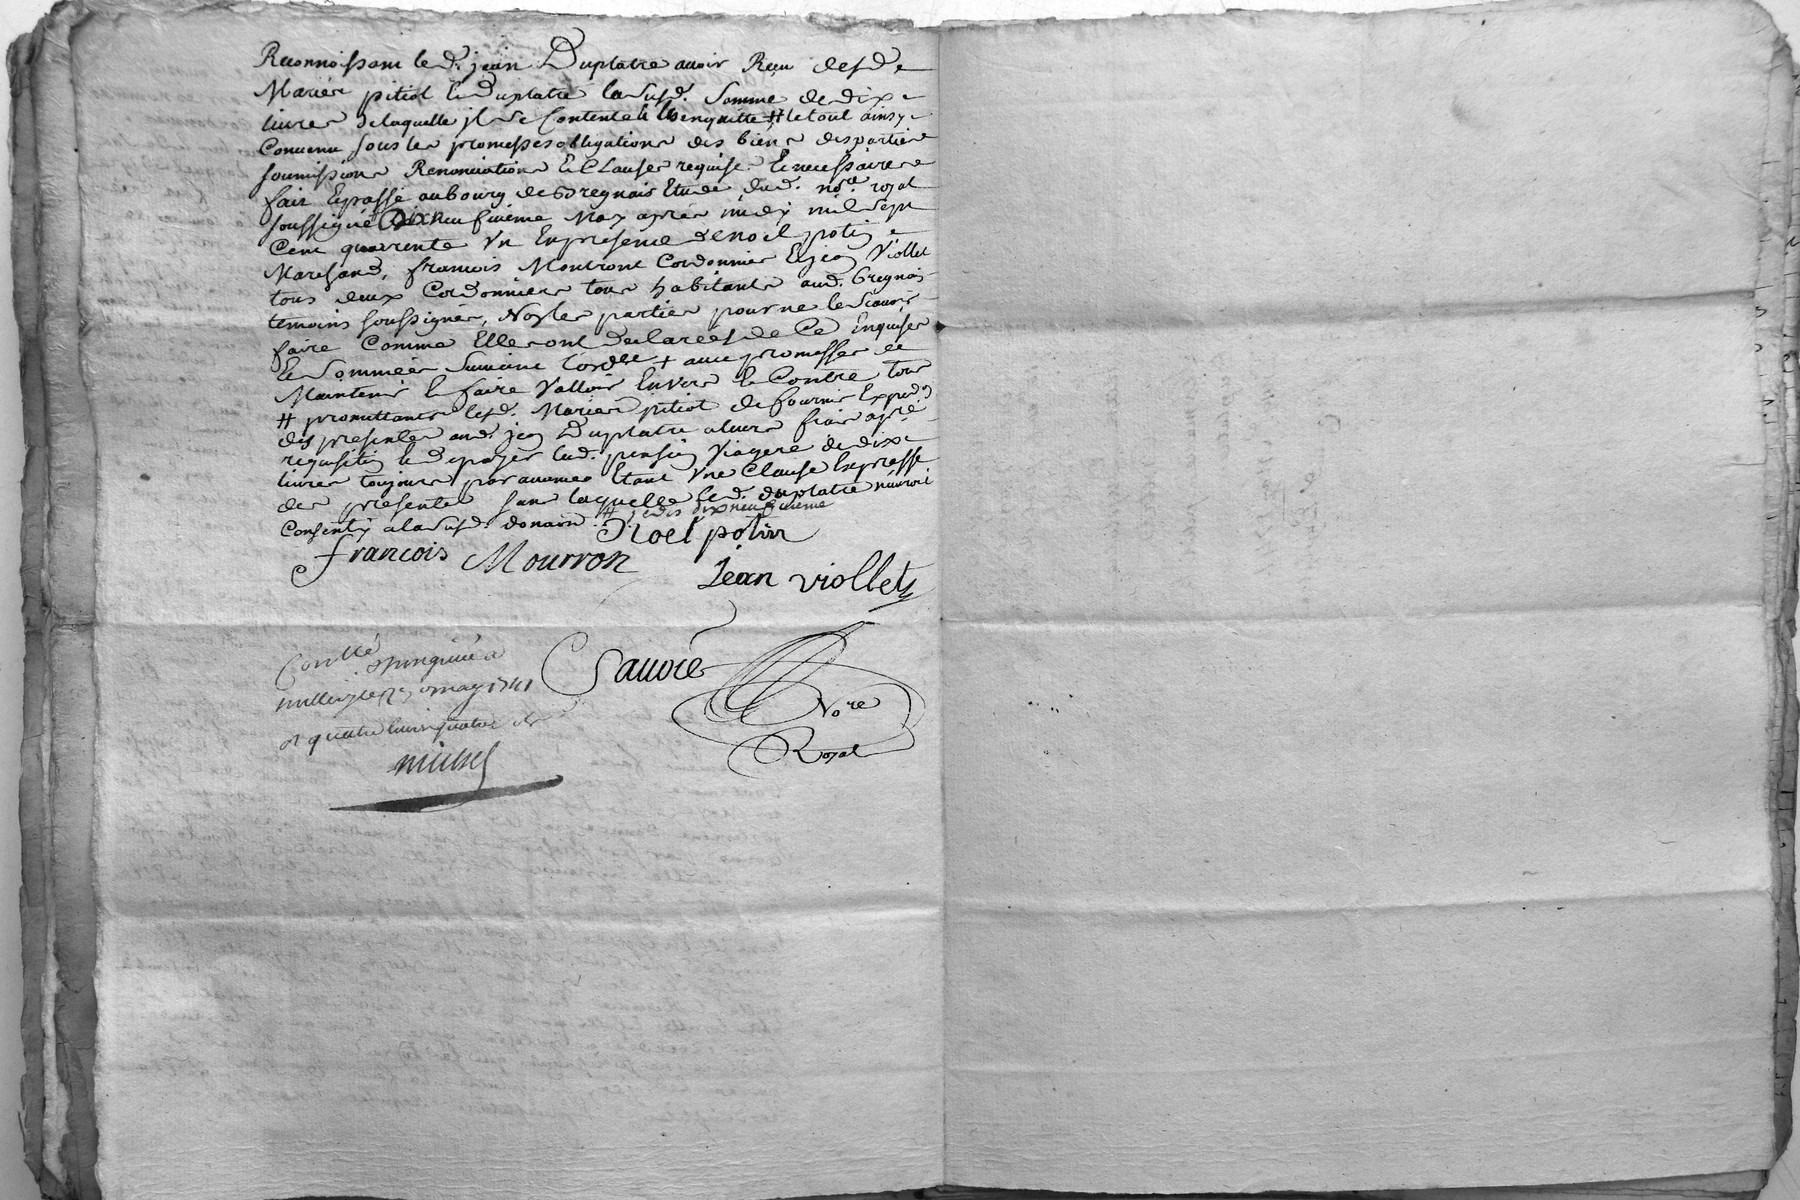 Reconnoissant led. jean Duplatre avoir Reçu desd.
Mariés pitiot & Duplatre la Susd. Somme de dix
livres de laquelle jl se Contente & l'en quitte # le tout ainsy
Convenu sous les promesses obligations des biens des parties
soumissions Renonciations & Clauses requises & necessaires
fait & passé au bourg de Gregnais Etude dud. nore. royal
soussigné Dix neufvieme May après midy mil sept
Cent quarrente Vn En presence de noel potin
Marchand, francois Montront Cordonnier & jean Viollet
tous deux Cordonniers tous habitants aud. Gregnais
temoins soussignés, Non les parties pour ne le Scavoir
faire Comme Elles ont declarées de Ce Enquises
& Sommées Suivant l'ordce + avec promesses de
Maintenir & faire Valloir Envers & Contre tous
# promettants lesd. Mariés pitiot de fournir Expedon
des presentes aud. jean Duplatre a leurs frais après
requisition & de payer lad. pension Viagere de dix
livres toujours par avance Etant Vne Clause Expresse
des presentes sans laquelle led. duplatre n'auroit
Consenty a la Susd. donaon. # dix neufvieme
Noel potin
francois Mourron
jean viollet
Conllé
may 1741
Sauvré
Nore
Royal